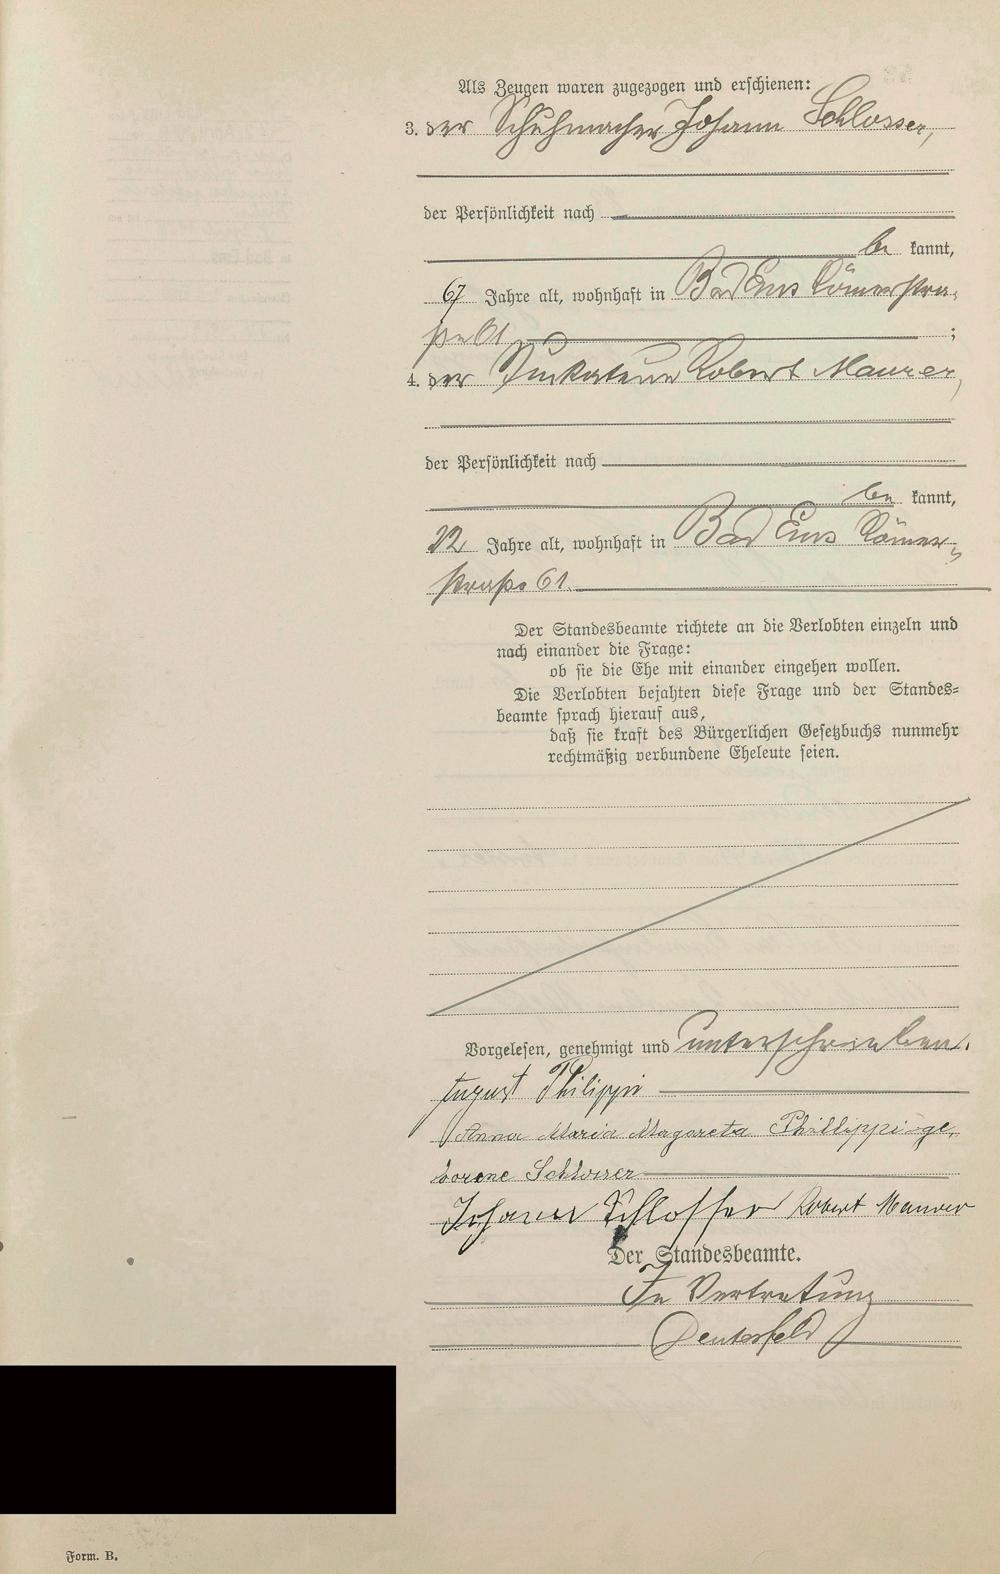 Als Zeugen waren zugezogen und erschienen:
3. der Schuhmacher Johann Schlosser,
der Persönlichkeit nach
be kannt,
67 Jahre alt, wohnhaft in Bad Ems Römerstra-
ße 61 ;
4. der Stuckateur Robert Maurer,
der Persönlichkeit nach
be kannt,
22 Jahre alt, wohnhaft in Bad Ems Römer-
straße 61.
Der Standesbeamte richtete an die Verlobten einzeln und
nach einander die Frage:
ob sie die Ehe mit einander eingehen wollen.
Die Verlobten bejahten diese Frage und der Standes-
beamte sprach hierauf aus,
daß sie kraft des Bürgerlichen Gesetzbuchs nunmehr
rechtmäßig verbundene Eheleute seien.
Vorgelesen, genehmigt und unterschrieben.
August Philippi
Anna Maria Magareta Phillippi ge-
borene Schlosser
Johann Schlosser Robert Maurer
Der Standesbeamte.
In Vertretung
Form. B.